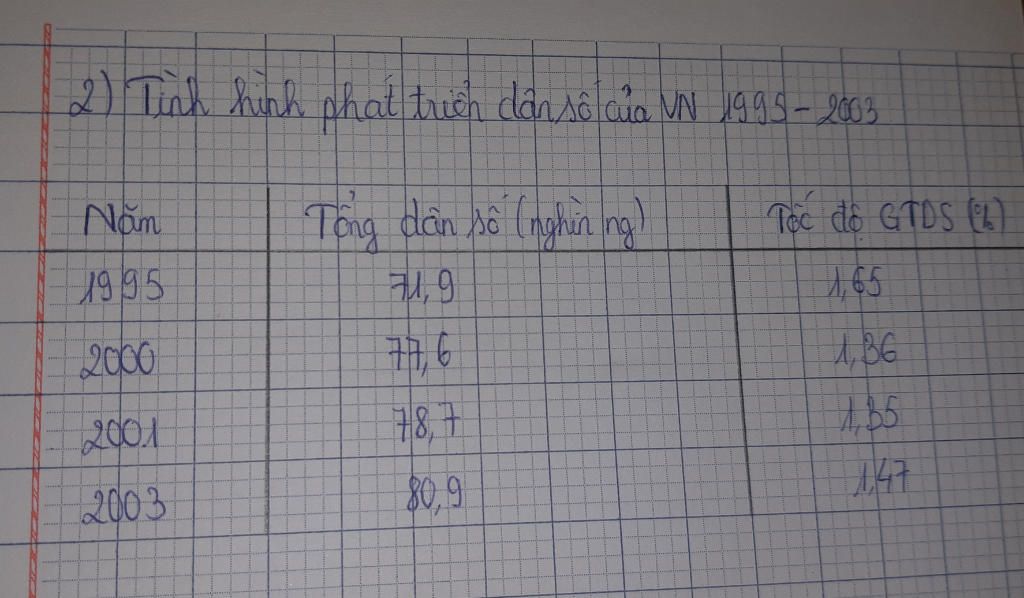 2) Tình hình phát triển dân số của VN 1995 - 2003
Năm Tổng dân số (nghìn ng) Tốc độ GTDS (%)
1995 71,9 1,65
2000 77,6 1,36
2001 78,7 1,35
2003 80,9 1,47